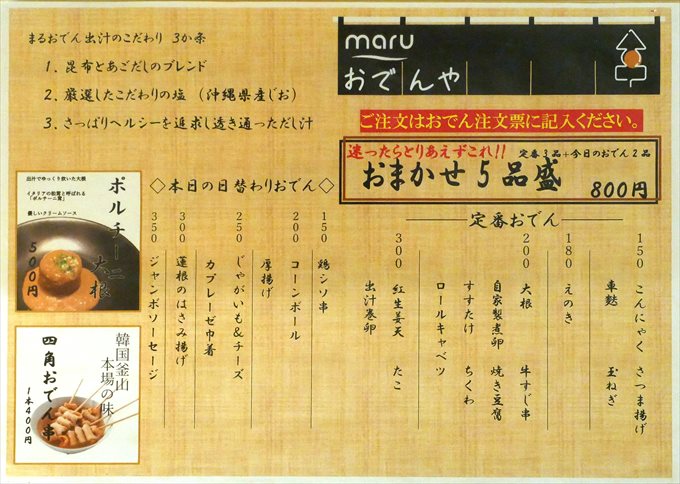 まるおでん出汁のこだわり 3か条
1、昆布とあごだしのブレンド
2、厳選したこだわりの塩（沖縄県産じお）
3、さっぱりヘルシーを追求し透き通っただし汁
maru
おでんや
ご注文はおでん注文票に記入ください。
迷ったらとりあえずこれ!!
定番3品+今日のおでん2品
おまかせ5品盛 800円
定番おでん
150 こんにゃく さつま揚げ
車麩 玉ねぎ
180 えのき
200 大根 牛すじ串
自家製煮卵 焼き豆腐
すすたけ ちくわ
ロールキャベツ
300 紅生姜天 たこ
出汁巻卵
◇本日の日替わりおでん◇
150 鶏シソ串
200 コーンボール
厚揚げ
250 じゃがいも&チーズ
カプレーゼ巾着
300 蓮根のはさみ揚げ
350 ジャンボソーセージ
出汁でゆっくり炊いた大根
イタリアの松茸と呼ばれる
「ポルチーニ茸」
優しいクリームソース
ポルチーニ
大根
500円
韓国釜山
本場の味
四角おでん串
1本400円